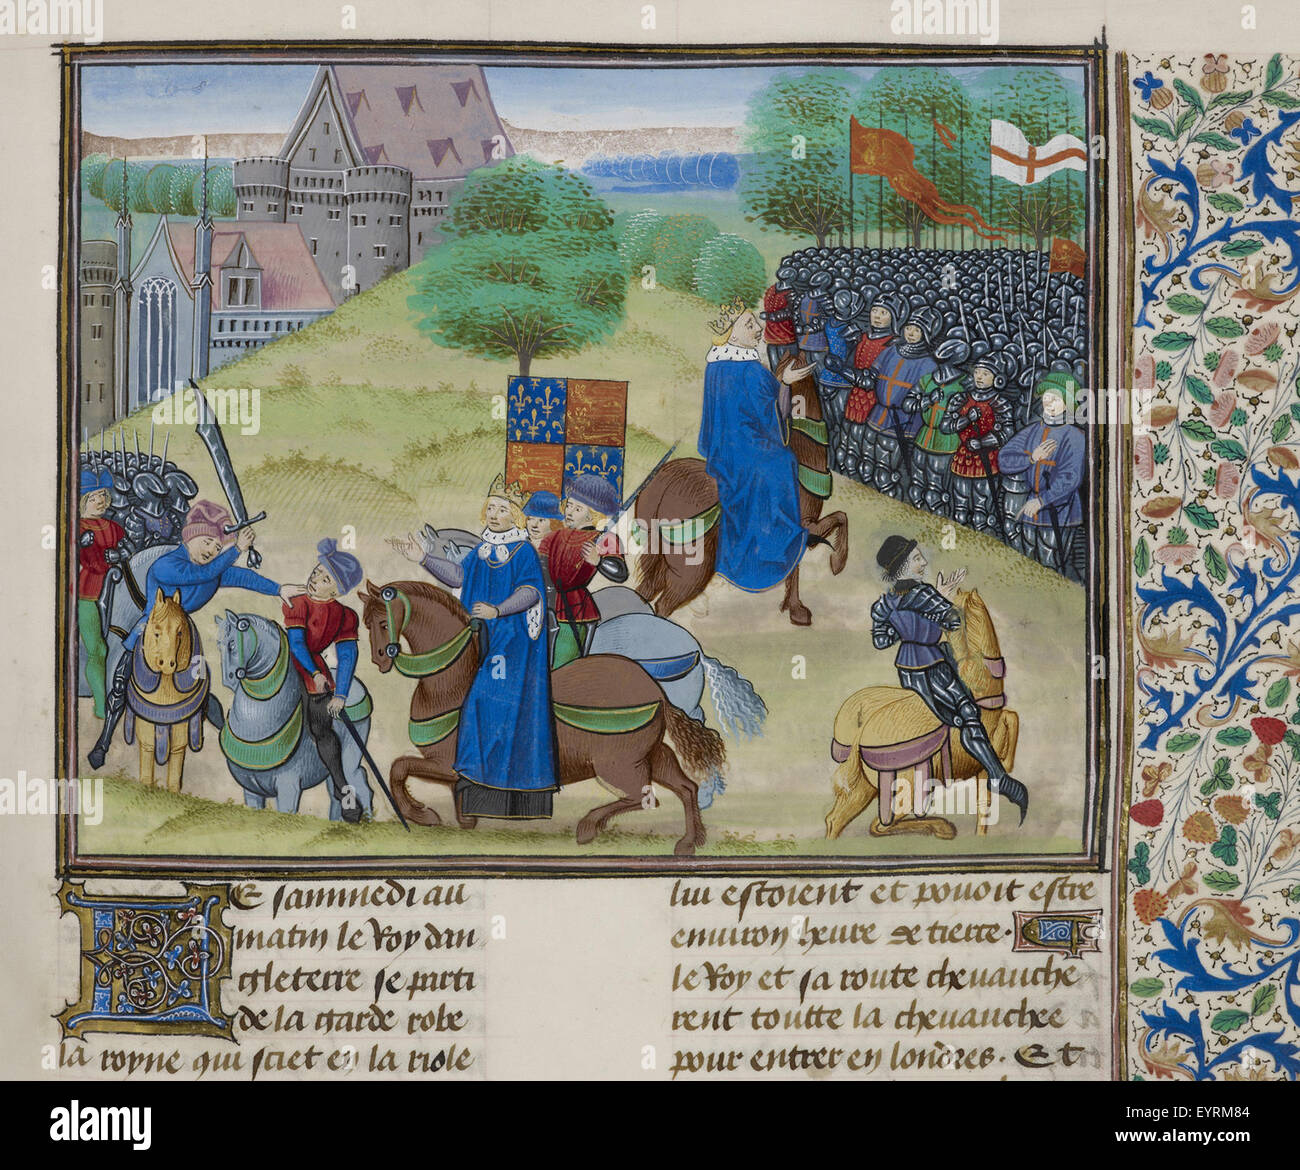 LE sammedi au
matin le Roy dan
gleterre se parti
de la garde robe
la royne qui sciet en la riole
lui estoient et povoit estre
environ heure de tierce.
le Roy et sa route chevauche
rent toutte la chevauchee
pour entrer en londres. Et
alamy stock photo
EYRM84
www.alamy.com